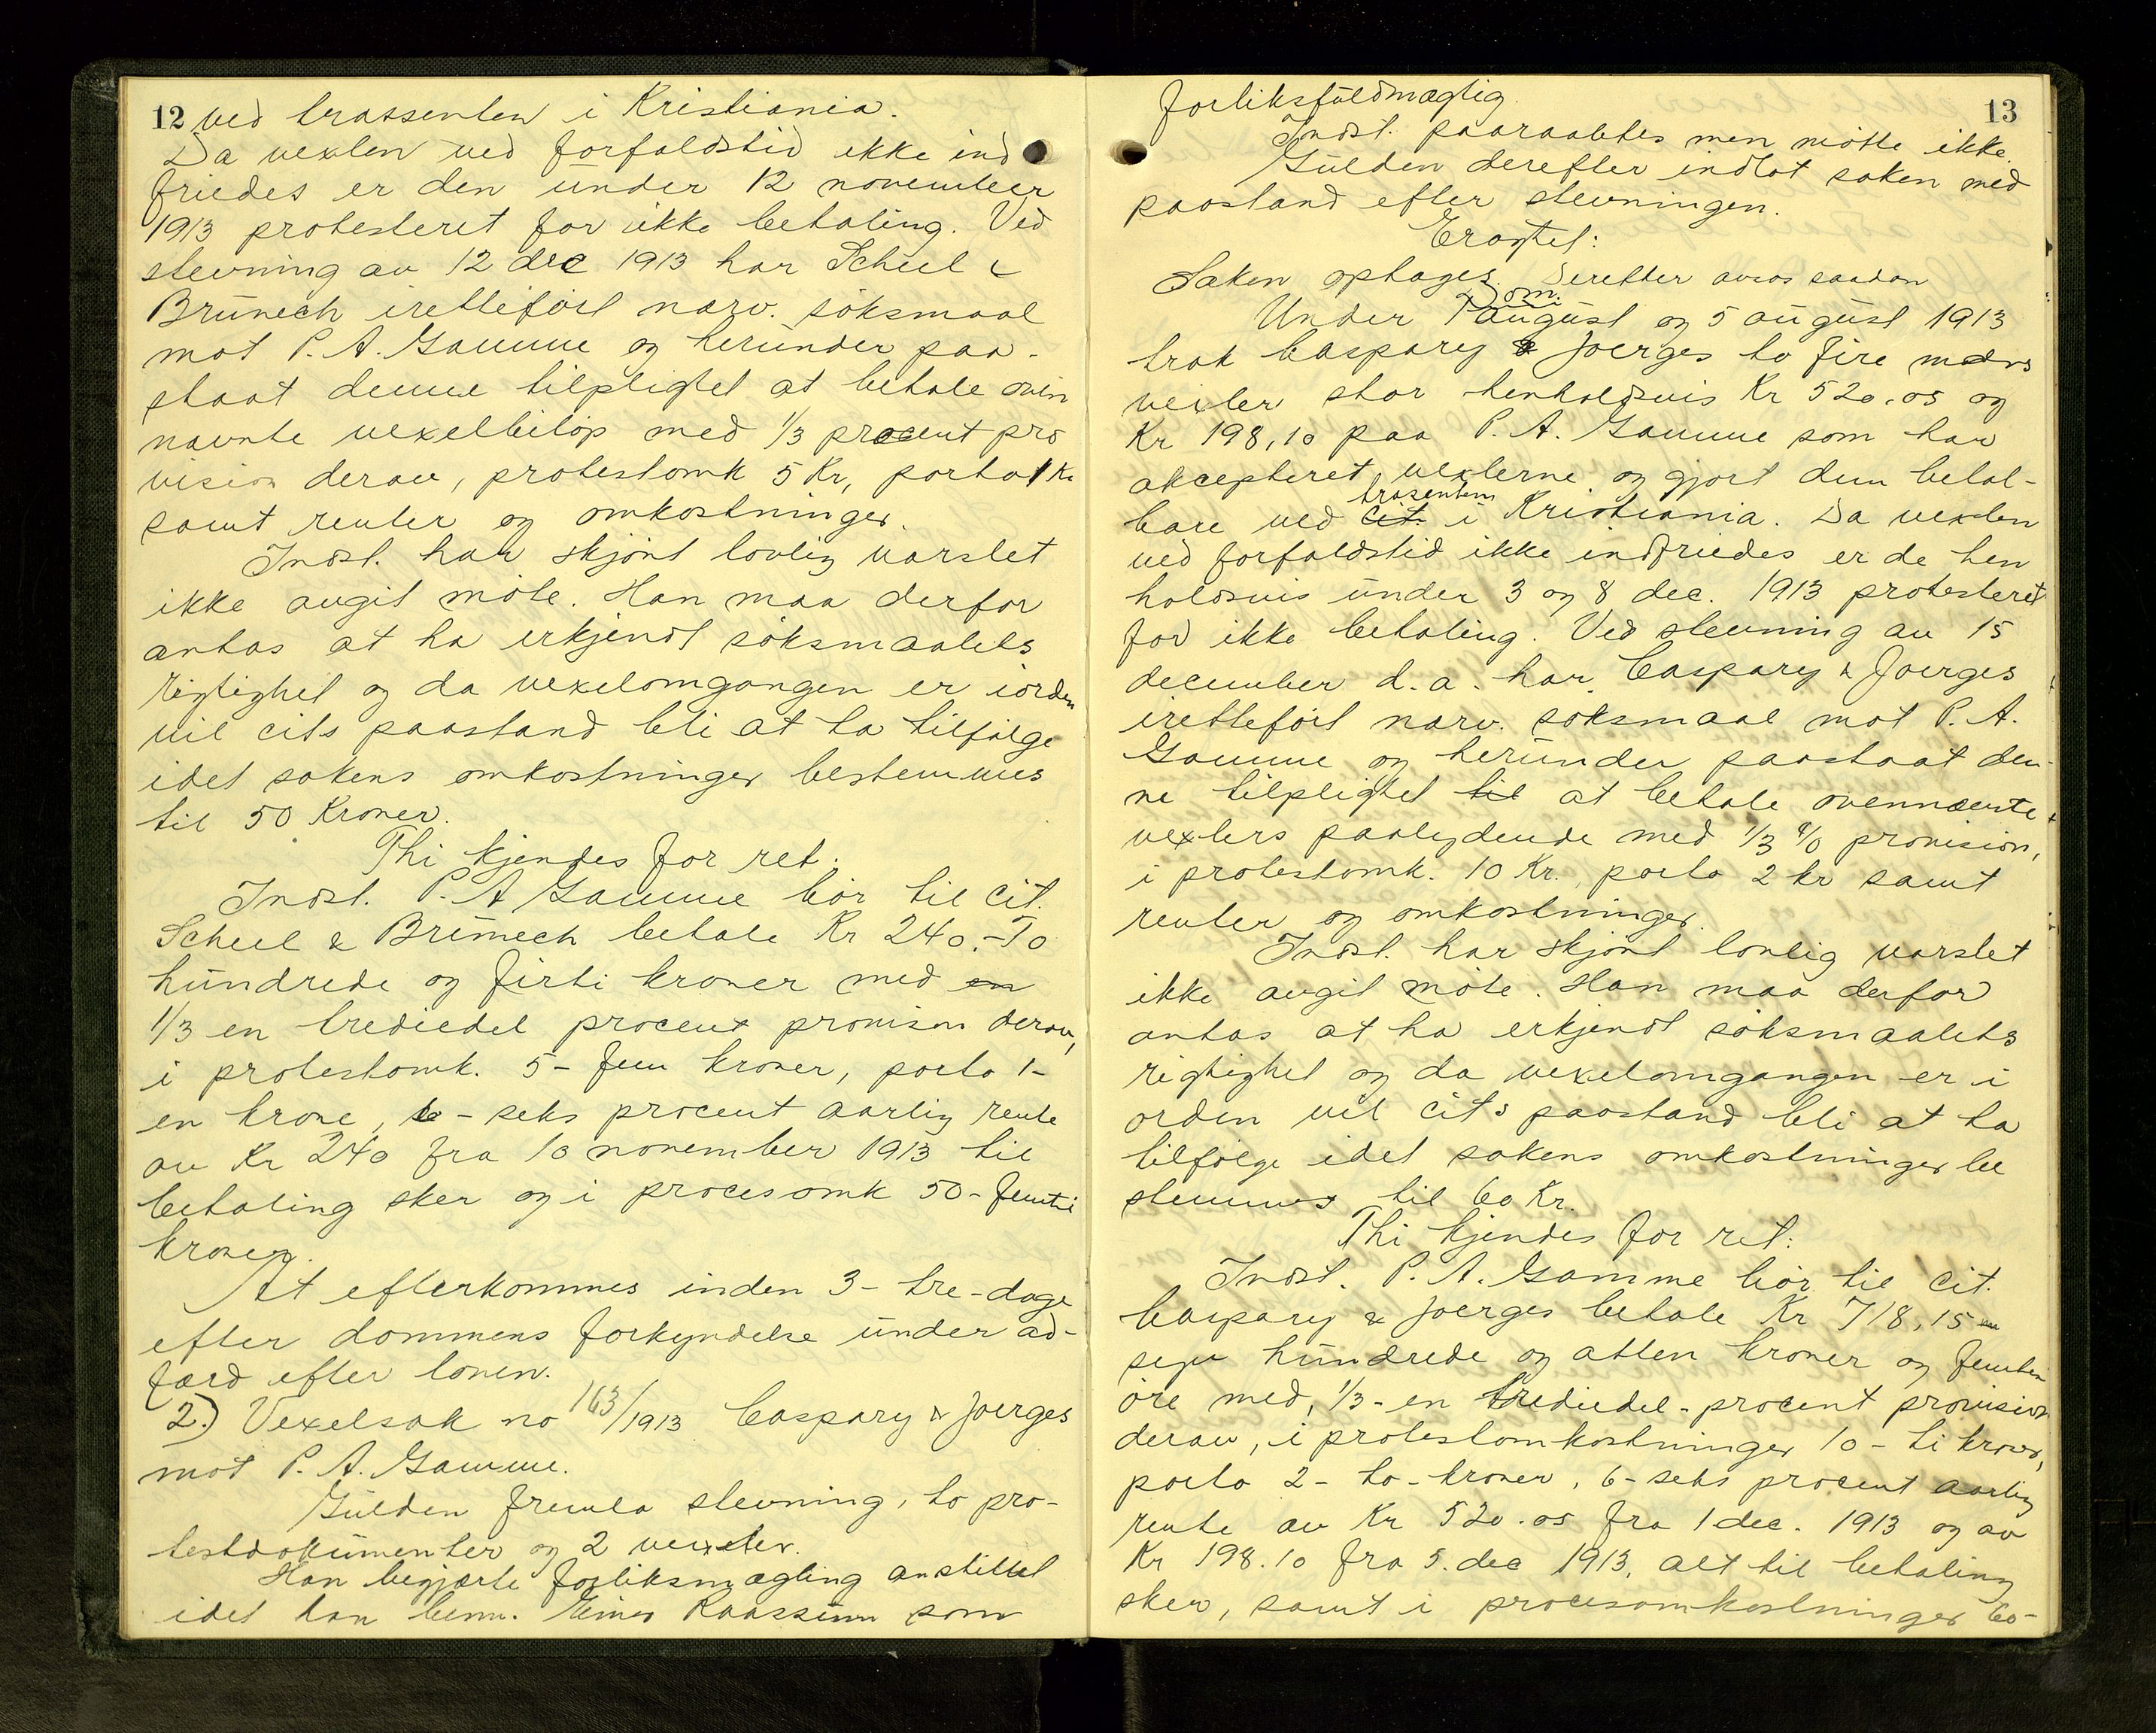 12
ved trassenten i Kristiania.
Da vexlen ved forfaldstid ikke ind
friedes er den under 12 november
1913 protesteret for ikke betaling. Ved
stevning av 12 dec 1913 har Scheel &
Brünech iretteført narv. söksmaal
mot P. A. Gamme og herunder paa-
staat denne tilpligtet at betale oven
navnte vexelbeløp med 1/3 procent pro
vision derav, protestomk 5 Kr, porto 1 Kr
samt renter og omkostninger.
Indst. har skjönt lovlig varslet
ikke avgit möte. Han maa derfor
antas at ha erkjendt söksmaalets
rigtighet og da vexelomgangen er iorden
vil cits paastand bli at ta tilfølge
idet sakens omkostninger bestemmes
til 50 Kroner.
Thi kjendes for ret:
Indst. P. A Gamme bör til cit.
Scheel & Brünech betale Kr 240.- To
hundrede og firti kroner med en
1/3 en trediedel procent provision derav,
i protestomk. 5- fem kroner, porto 1-
en krone, 6 - seks procent aarlig rente
av Kr 240 fra 10 november 1913 til
betaling sker og i procesomk 50- femti
kroner.
At efterkommes inden 3- tre- dage
efter dommens forkyndelse under ad-
færd efter loven.
2.) Vexelsak no 163/1913 Caspary & Joerges
mot P. A. Gamme.
Gulden fremla stevning, to pro-
testdokumenter og 2 vexler.
Han begjærte forliksmægling anstillet
idet han bem. Einar Raassum som
13
forliksfuldmægtig.
Indst. paaraabtes men mötte ikke.
Gulden derefter indlot saken med
paastand efter stevningen.
Eragtet:
Saken optages. Derefter avsas saadan
Dom:
Under 1 august og 5 august 1913
trak Caspary & Joerges to fire mdrs
vexler stor henholdsvis Kr 520.05 og
Kr 198,10 paa P. A. Gamme som har
akcepteret vexlerne og gjort dem betal-
trasenten
bare ved cit. i Kristiania. Da vexlen
ved forfaldstid ikke indfriedes er de hen
holdsvis under 3 og 8 dec. 1913 protesteret
for ikke betaling. Ved stevning av 15
december d.a. har Caspary & Joerges
iretteført narv. söksmaal mot P. A.
Gamme og herunder paastaat den-
ne tilpligtet til at betale ovennævnte
vexlers paalydende med 1/3 % provision,
i protestomk. 10 Kr., porto 2 kr samt
renter og omkostninger.
Indst. har skjönt lovlig varslet
ikke avgit möte. Han maa derfor
antas at ha erkjendt söksmaalets
rigtighet og da vexelomgangen er i
orden vil cits paastand bli at ta
tilfölge idet sakens omkostninger be
stemmes til 60 Kr.
Thi kjendes for ret:
Indst. P. A. Gamme bör til cit.
Caspary & Joerges betale Kr 718,15
syv hundrede og atten kroner og femten
öre med, 1/3 - en trediedel - procent provision
derav, i protestomkostninger 10 - ti kroner,
porto 2- to- kroner, 6- seks procent aarlig
rente av Kr 520.05 fra 1 dec. 1913 og av
Kr 198.10 fra 5. dec 1913, alt til betaling
sker, samt i procesomkostninger 60-